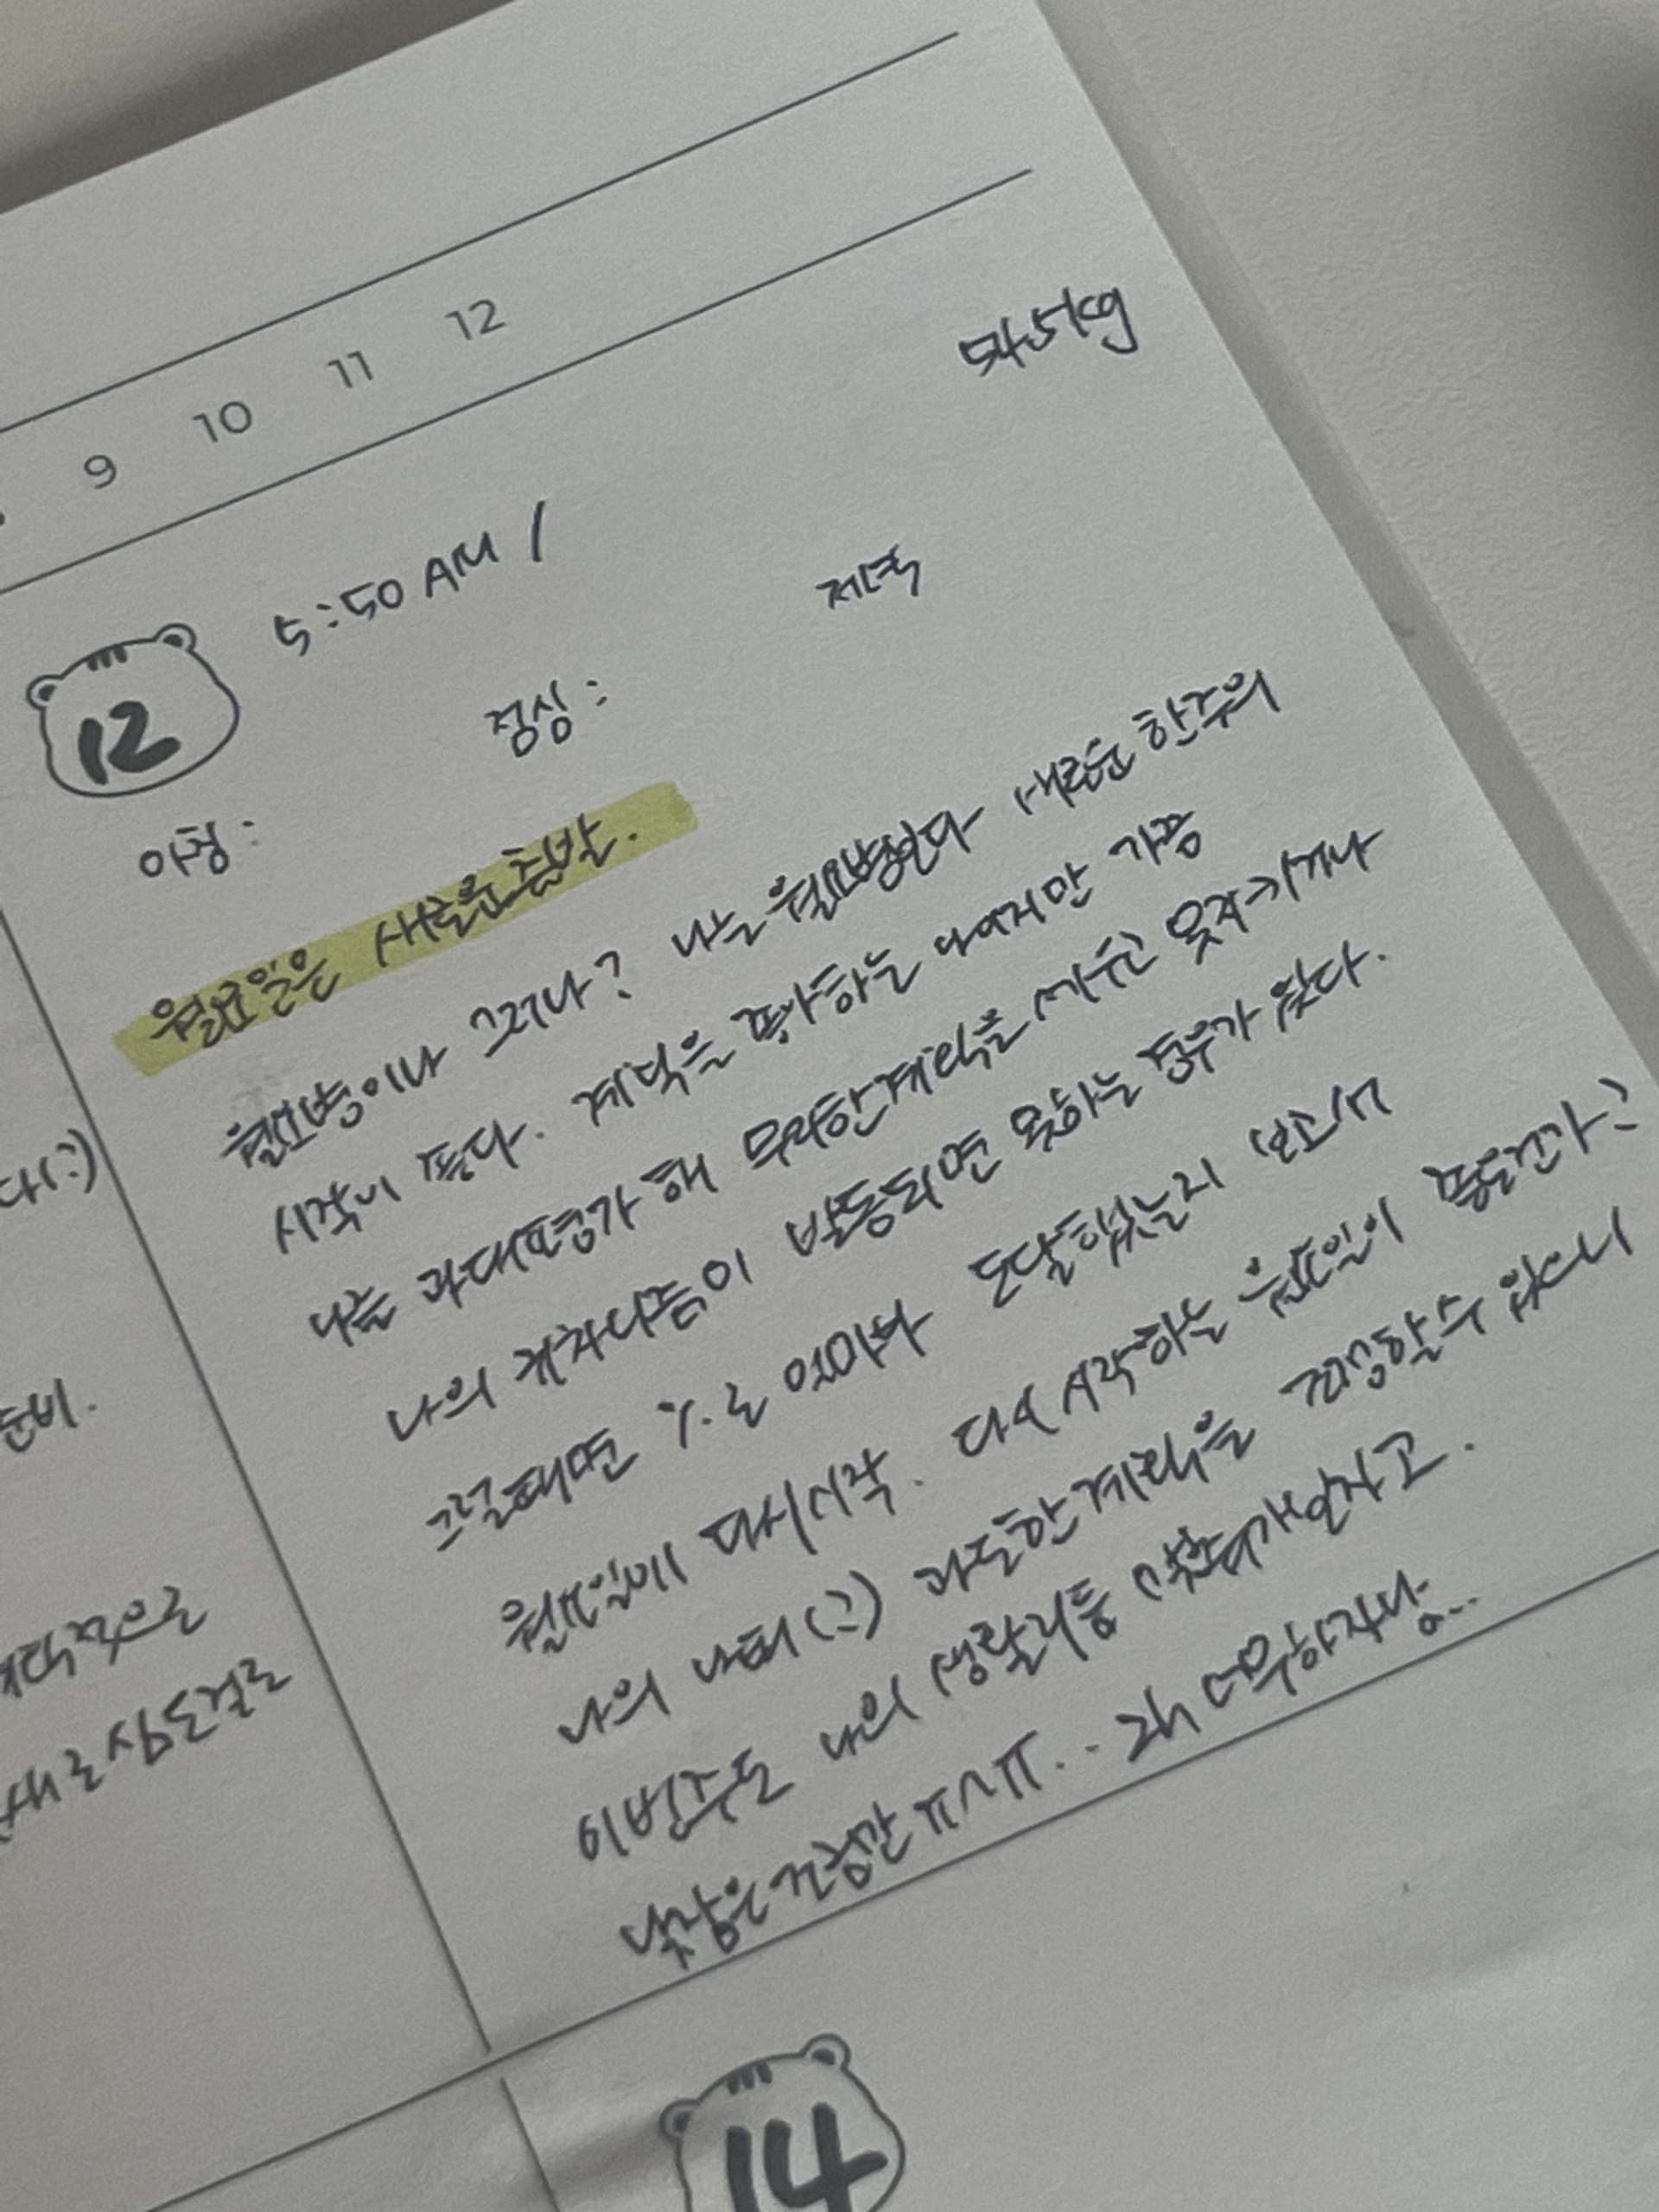 9 10 11 12
54.5kg
12 5:50 AM /
아침: 점심: 저녁
월요일은 새로운 출발.
월요병이나 그러나? 나는 월요병보다 새로운 한주의
시작이 좋다. 계획을 좋아하는 나여지만 가끔
나는 과대평가 해 무리한계획을 세우곤 못지키거나
나의 귀차니즘이 발동되면 못하는 경우가 있다.
그럴때면 %로 얼마나 도달했는지 보고서
월요일에 다시시작. 다시 시작하는 월요일이 좋은건가?
나의 나태(?) 과도한계획을 걱정할 수 있으니
이번주도 나의 생활리듬 안깨지고.
낮잠은 건강만 ㅠㅅㅠ.. 2h 너무하자낭...
다(?)
준비.
계획적으로
새로 삼도걸로
14